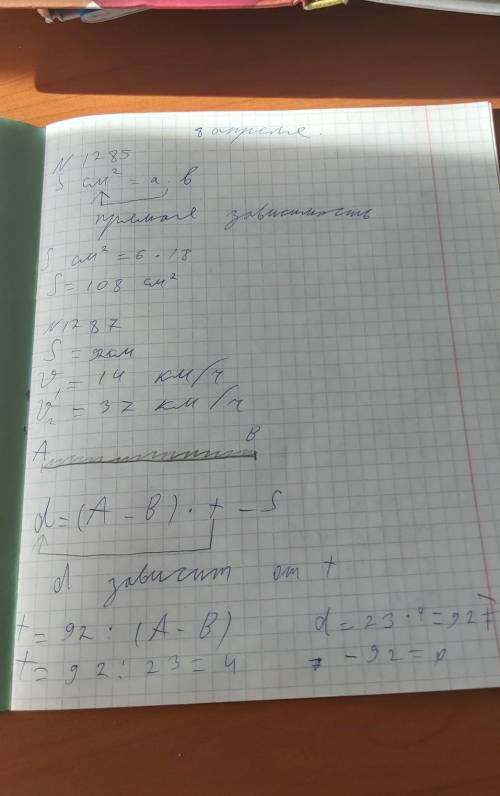 8 апреля.
N 1285
S см² = a, b
прямая зависимость
S см² = 6 · 18
S = 108 см²
N 1287
S = 92км
V₁ = 14 км/ч
V₂ = 37 км/ч
A B
d = (A - B) · t - S
d зависит от t
t = 92 : (A - B)
t = 92 : 23 = 4
d = 23 · 4 = 92
- 92 = 0